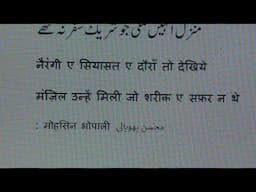 منزل انہیں ملی جو شریک سفر نہ تھے
नैरंगी ए सियासत ए दौराँ तो देखिये
मंज़िल उन्हें मिली जो शरीक ए सफ़र न थे
: मोहसिन भोपाली محسن بھوپالی